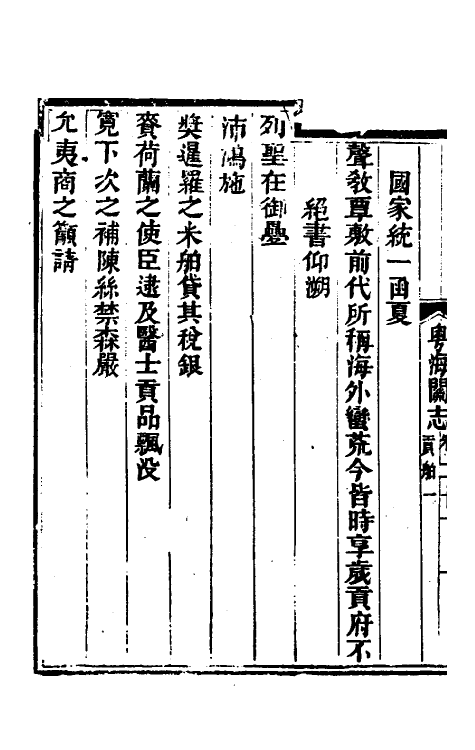 粤海關志 卷二十 貢舶一
國家統一函夏
聲敎覃敷前代所稱海外蠻荒今皆時享歲貢府不
絕書仰溯
列聖在御疊
沛鴻施
奬暹羅之米舶貸其稅銀
賚荷蘭之使臣逮及醫士貢品飄没
寬下次之補陳絲禁森嚴
允夷商之籲請